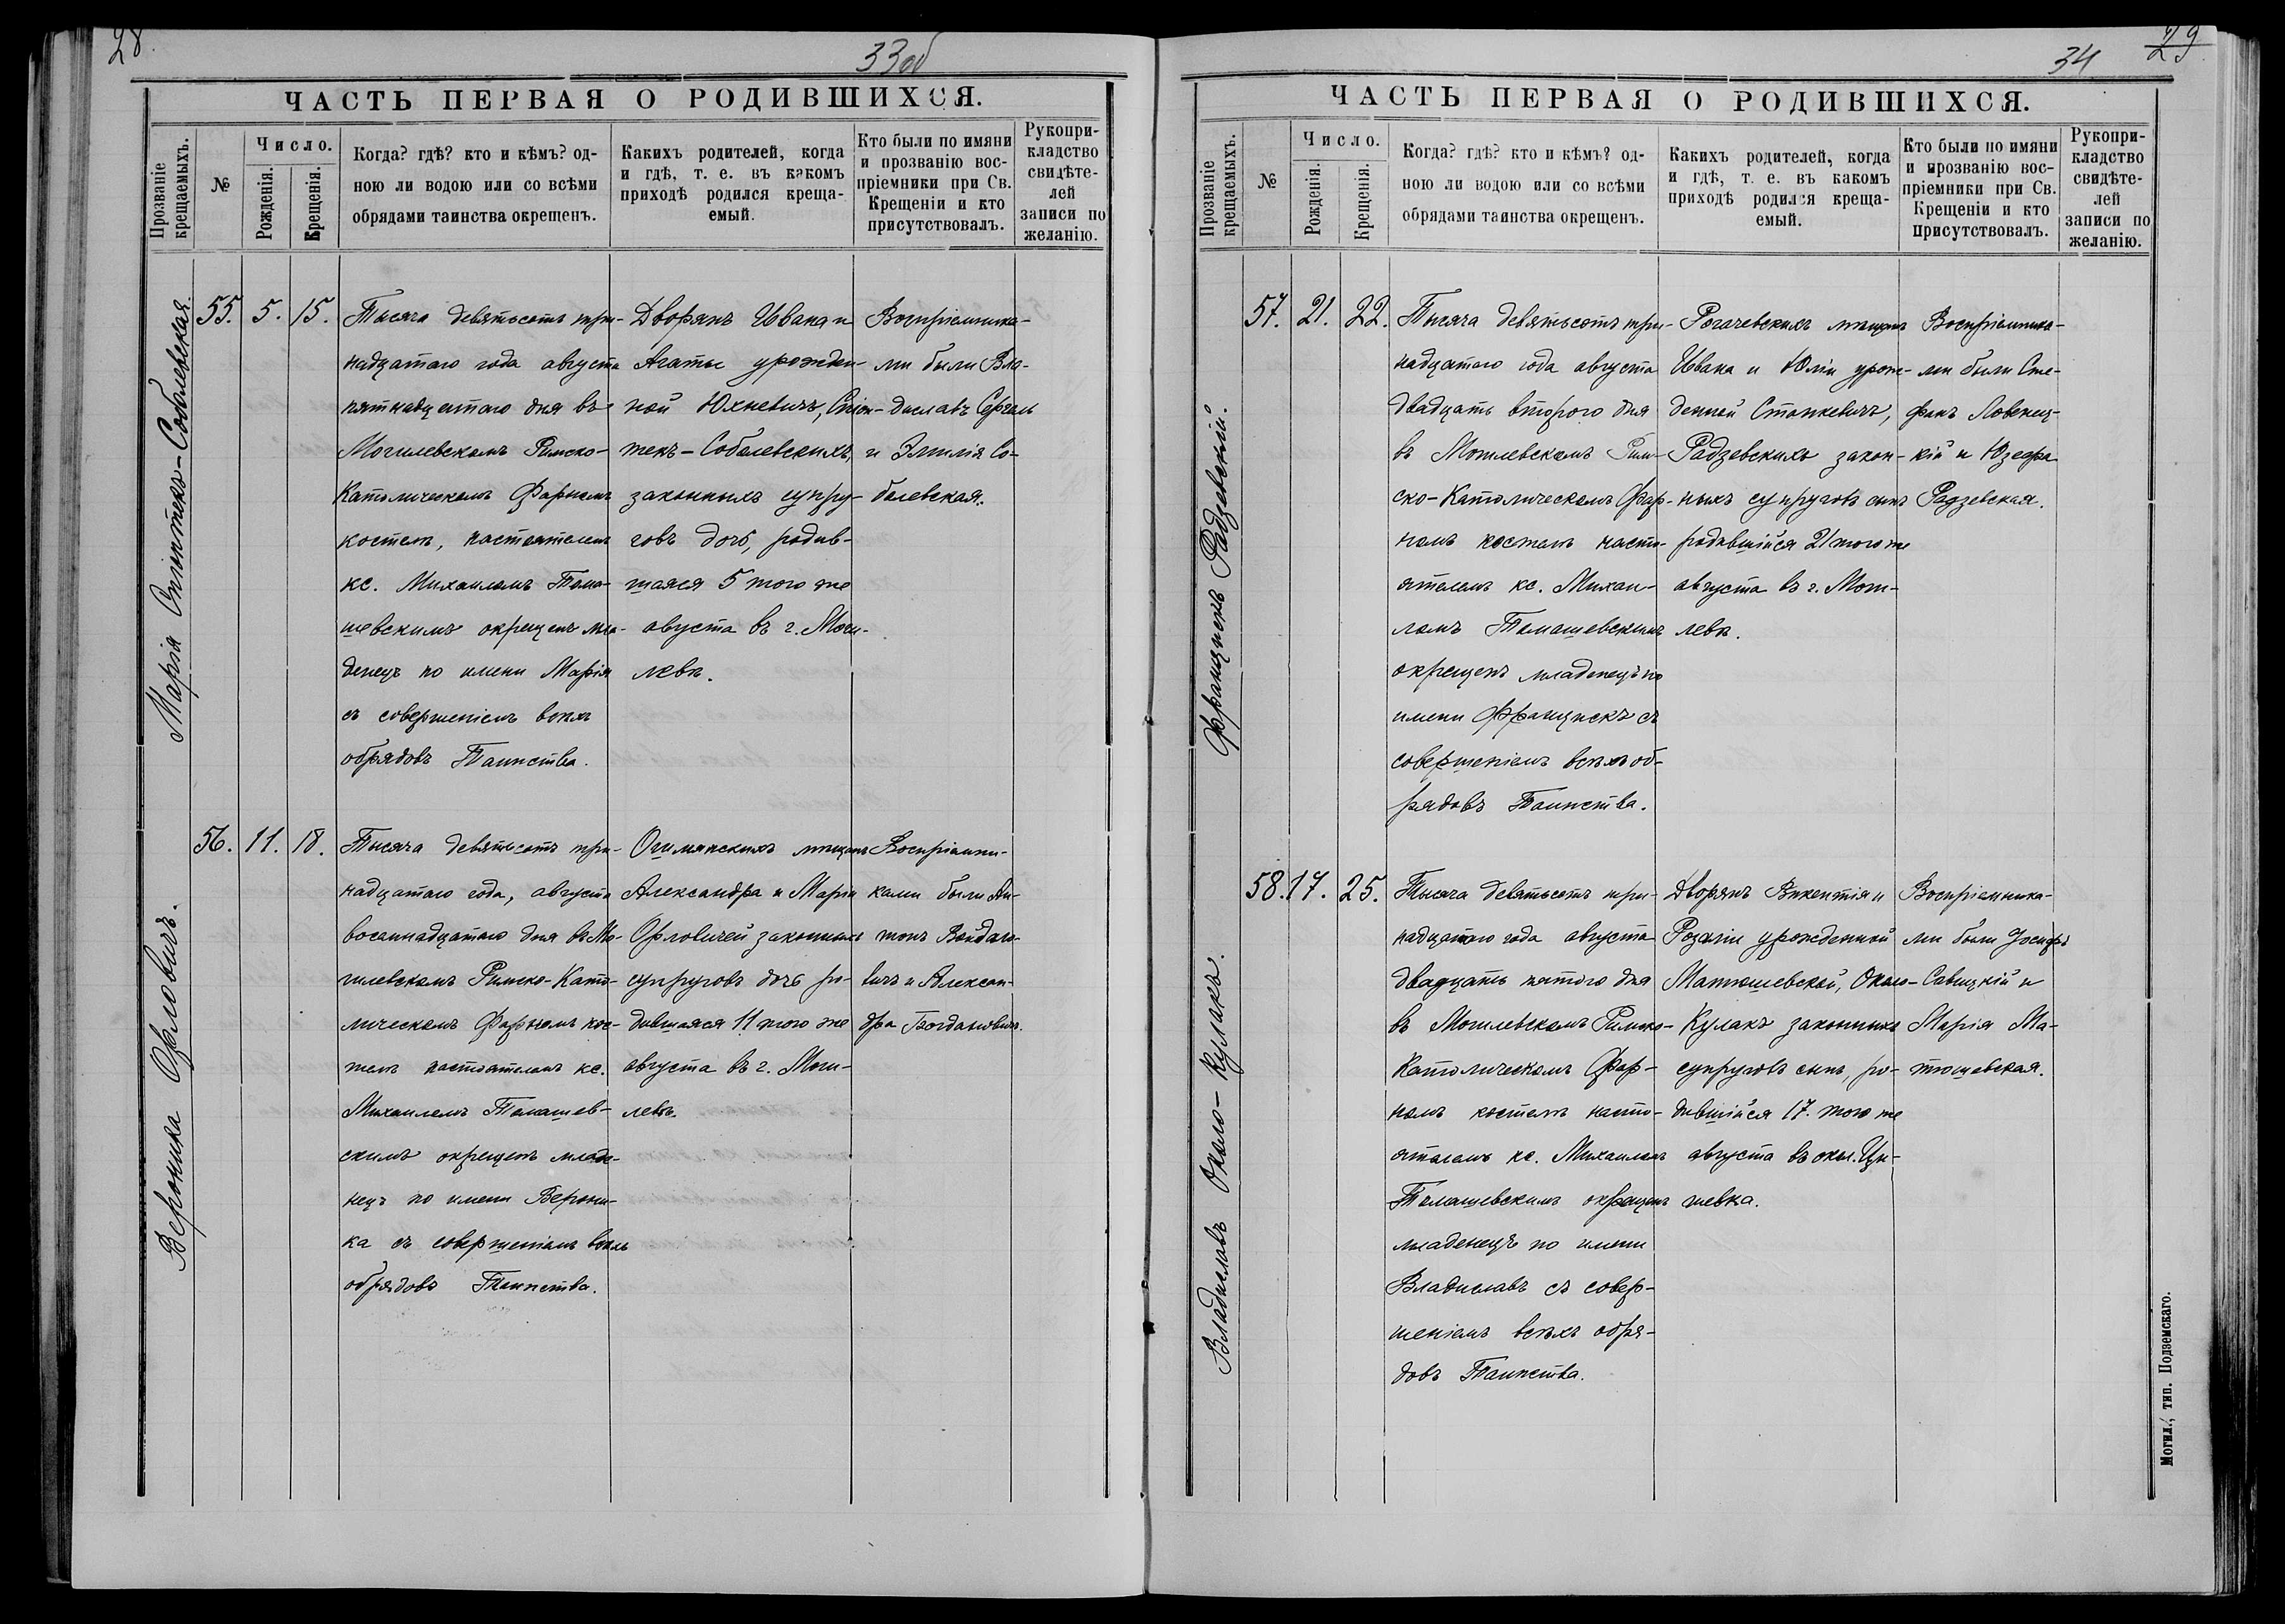 28.
33 об
ЧАСТЬ ПЕРВАЯ О РОДИВШИХСЯ.
Прозваніе крещаемыхъ.
№
Число.
Рожденія.
Крещенія.
Когда? гдѣ? кто и кѣмъ? од-
ною ли водою или со всѣми
обрядами таинства окрещенъ.
Какихъ родителей, когда
и гдѣ, т. е. въ какомъ
приходѣ родился креща-
емый.
Кто были по имяни
и прозванію вос-
пріемники при Св.
Крещеніи и кто
присутствовалъ.
Рукопри-
кладство
свидѣте-
лей
записи по
желанію.
Марія Спіонтекъ-Соболевская.
55. 5. 15.
Тысяча девятьсотъ три-
надцатаго года августа
пятнадцатаго дня въ
Могилевскомъ Римско-
Католическомъ Фарномъ
костелѣ, настоятелемъ
кс. Михаиломъ Тома-
шевскимъ окрещенъ мла-
денецъ по имени Марія
съ совершеніемъ всѣхъ
обрядовъ Таинства.
Дворянъ Ивана и
Агаты урожден-
ной Юхневичъ, Спіон-
текъ-Соболевскихъ,
законныхъ супру-
говъ дочь, родив-
шаяся 5 того же
августа въ г. Моги-
левѣ.
Воспріемника-
ми были Вла-
диславъ Сергель
и Эмилія Со-
болевская.
Вероника Орловичъ.
56. 11. 18.
Тысяча девятьсотъ три-
надцатаго года, августа
восемнадцатаго дня въ Мо-
гилевскомъ Римско-Като-
лическомъ Фарномъ кос-
телѣ настоятелемъ кс.
Михаиломъ Томашев-
скимъ окрещенъ младе-
нецъ по имени Верони-
ка съ совершеніемъ всѣхъ
обрядовъ Таинства.
Ошмянскихъ мѣщанъ
Александра и Маріи
Орловичей законныхъ
супруговъ дочь ро-
дившаяся 11 того же
августа въ г. Моги-
левѣ.
Воспріемни-
ками были Ан-
тонъ
вичъ и Алексан-
дра Богдановичъ.
34
29
ЧАСТЬ ПЕРВАЯ О РОДИВШИХСЯ.
Прозваніе крещаемыхъ.
№
Число.
Рожденія.
Крещенія.
Когда? гдѣ? кто и кѣмъ? од-
ною ли водою или со всѣми
обрядами таинства окрещенъ.
Какихъ родителей, когда
и гдѣ, т. е. въ какомъ
приходѣ родился креща-
емый.
Кто были по имяни
и прозванію вос-
пріемники при Св.
Крещеніи и кто
присутствовалъ.
Рукопри-
кладство
свидѣте-
лей
записи по
желанію.
Францискъ Радзевскій.
57. 21. 22.
Тысяча девятьсотъ три-
надцатаго года августа
двадцать второго дня
въ Могилевскомъ Рим-
ско-Католическомъ Фар-
номъ костелѣ насто-
ятелемъ кс. Михаи-
ломъ Томашевскимъ
окрещенъ младенецъ по
имени Францискъ съ
совершеніемъ всѣхъ об-
рядовъ Таинства.
Рогачевскихъ мѣщанъ
Ивана и Юліи урож-
денной Станкевичъ,
Радзевскихъ закон-
ныхъ супруговъ сынъ
родившійся 21 того же
августа въ г. Моги-
левѣ.
Воспріемника-
ми были Сте-
фанъ Ловенец-
кій и Юзефа
Радзевская.
Владиславъ Около-Кулакъ.
58. 17. 25.
Тысяча девятьсотъ три-
надцатаго года августа
двадцать пятого дня
въ Могилевскомъ Римско-
Католическомъ Фар-
номъ костелѣ насто-
ятелемъ кс. Михаиломъ
Томашевскимъ окрещенъ
младенецъ по имени
Владиславъ съ совер-
шеніемъ всѣхъ обря-
довъ Таинства.
Дворянъ Викентія и
Розаліи урожденной
Матюшевской, Около-
Кулакъ законныхъ
супруговъ сынъ, ро-
дившійся 17. того же
августа въ окол.
Воспріемника-
ми были Іосифъ
Савицкій и
Марія Ма-
тюшевская.
Могил., тип. Подземскаго.